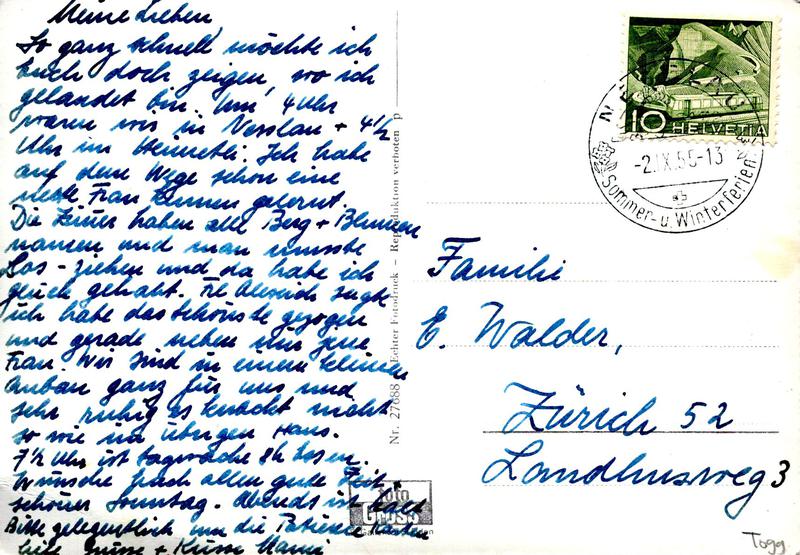 Meine Lieben
So ganz schnell möchte ich
Euch doch zeigen, wo ich
gelandet bin. Um 4 Uhr
waren wir in Nesslau + 4½
Uhr im Hennetli. Ich habe
auf dem Wege schon eine
nette Frau kennen gelernt.
Die Zimer haben alle Berg + Blumen
namen und man musste
Los-ziehen und da habe ich
glück gehabt. Frl. sagte
ich habe das schönste gezogen
und gerade neben mir jene
Frau. Wir sind in einem kleinen
Anbau ganz für uns und
sehr ruhig es knackt nicht
so wie im übrigen Haus.
7½ Uhr ist tagwache 8h Essen.
Wünsche Euch allen gute Zeit,
schöner Sonntag. Abends ist kalt
Bitte gelegentlich um die Patience karten
liebe Grüsse + Küsse Mami
Nr. 27688 Echter Fotodruck – Reproduktion verboten p
foto Gross
HELVETIA
10
NESSLAU
-2.IX.55-13
Sommer- u. Winterferien
Familie
E. Walder,
Zürich 52
Landhusweg 3
Togg.